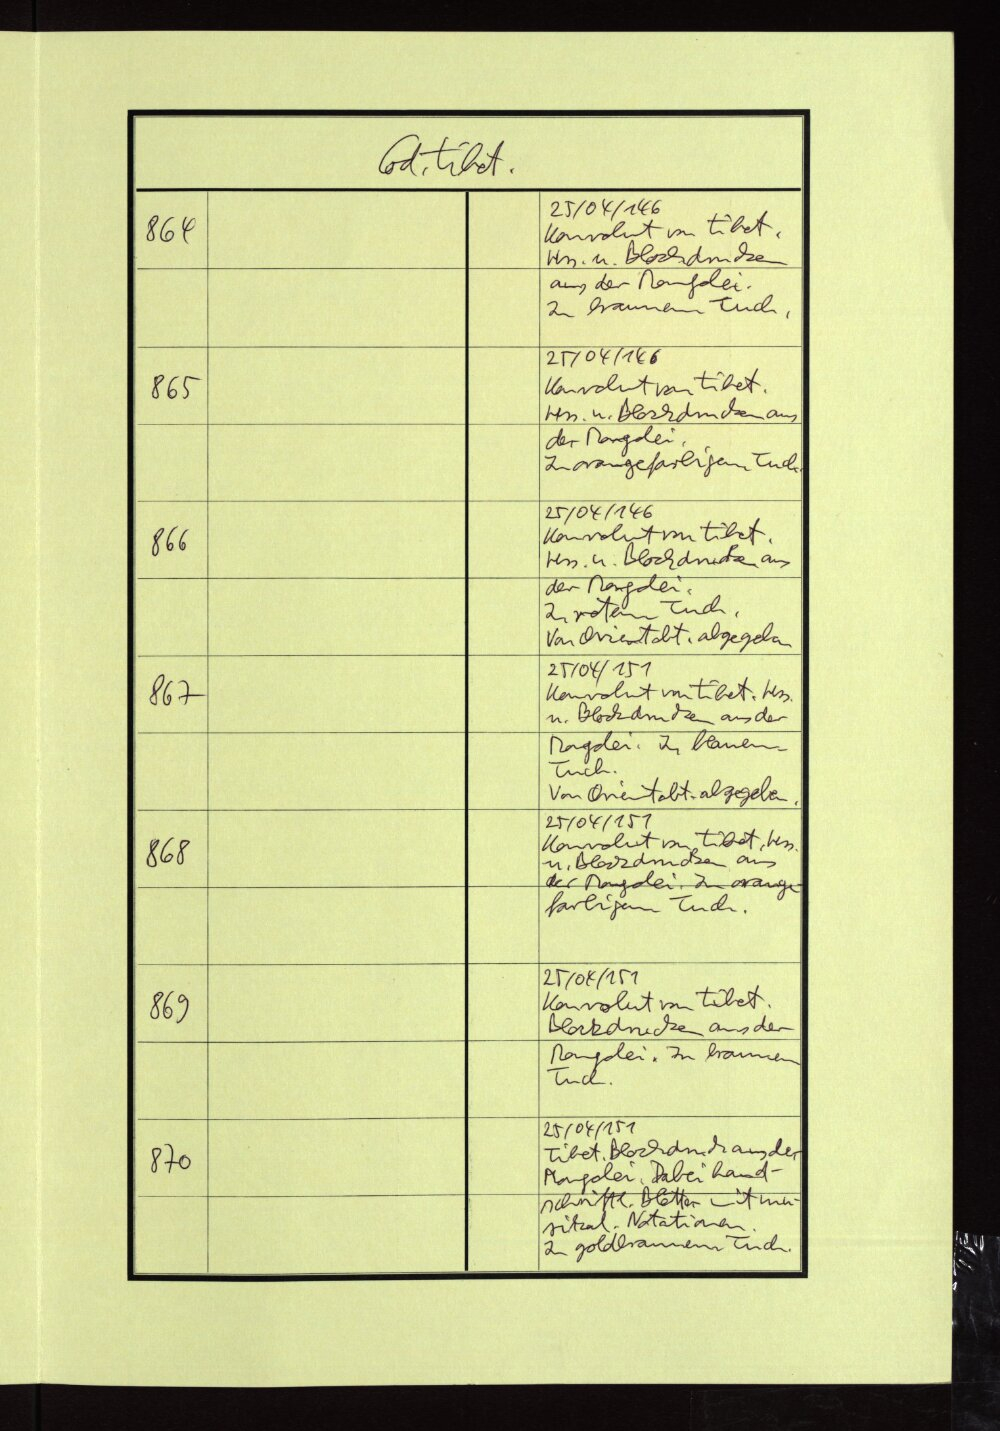 Cod. tibet.
864
25/04/146
Konvolut von tibet.
Hss. u. Blockdrucken
aus der Mongolei.
In braunem Tuch.
865
25/04/146
Konvolut von tibet.
Hss. u. Blockdrucken aus
der Mongolei.
In orangefarbigem Tuch.
866
25/04/146
Konvolut von tibet.
Hss. u. Blockdrucken aus
der Mongolei.
In rotem Tuch.
Von Orientabt. abgegeben
867
25/04/151
Konvolut von tibet. Hss.
u. Blockdrucken aus der
Mongolei. In blauem
Tuch.
Von Orientabt. abgegeben.
868
25/04/151
Konvolut von tibet. Hss.
u. Blockdrucken aus
der Mongolei. In orange-
farbigem Tuch.
869
25/04/151
Konvolut von tibet.
Blockdrucken aus der
Mongolei. In braunem
Tuch.
870
25/04/151
Tibet. Blockdruck aus der
Mongolei. Dabei hand-
schriftl. Blätter mit mu-
sikal. Notationen.
In goldbraunem Tuch.